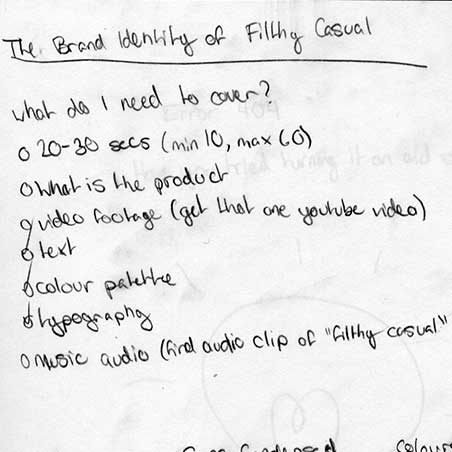 The Brand Identity of Filthy Casual
what do I need to cover?
o 20-30 secs (min 10, max 60)
o what is the product
o video footage (get that one youtube video)
o text
o colour palette
o typography
o music audio (find audio clip of "filthy casual"
Error 404
turning it on
Condensed colours